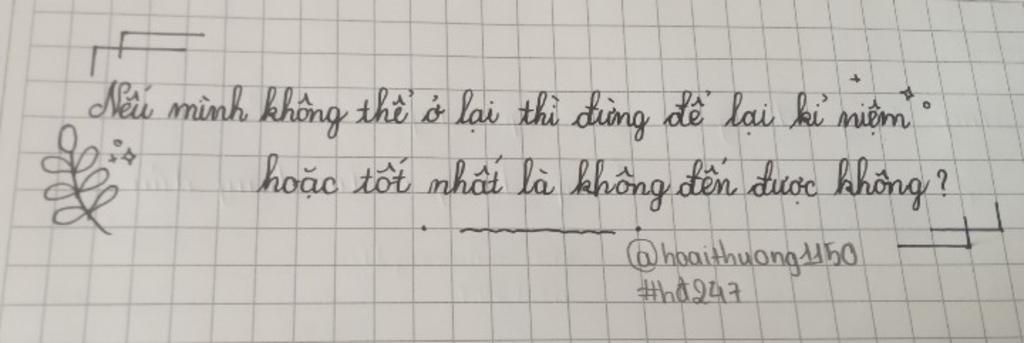 Nếu mình không thể ở lại thì đừng để lại kỉ niệm
hoặc tốt nhất là không đến được không?
@hoaithuong1150